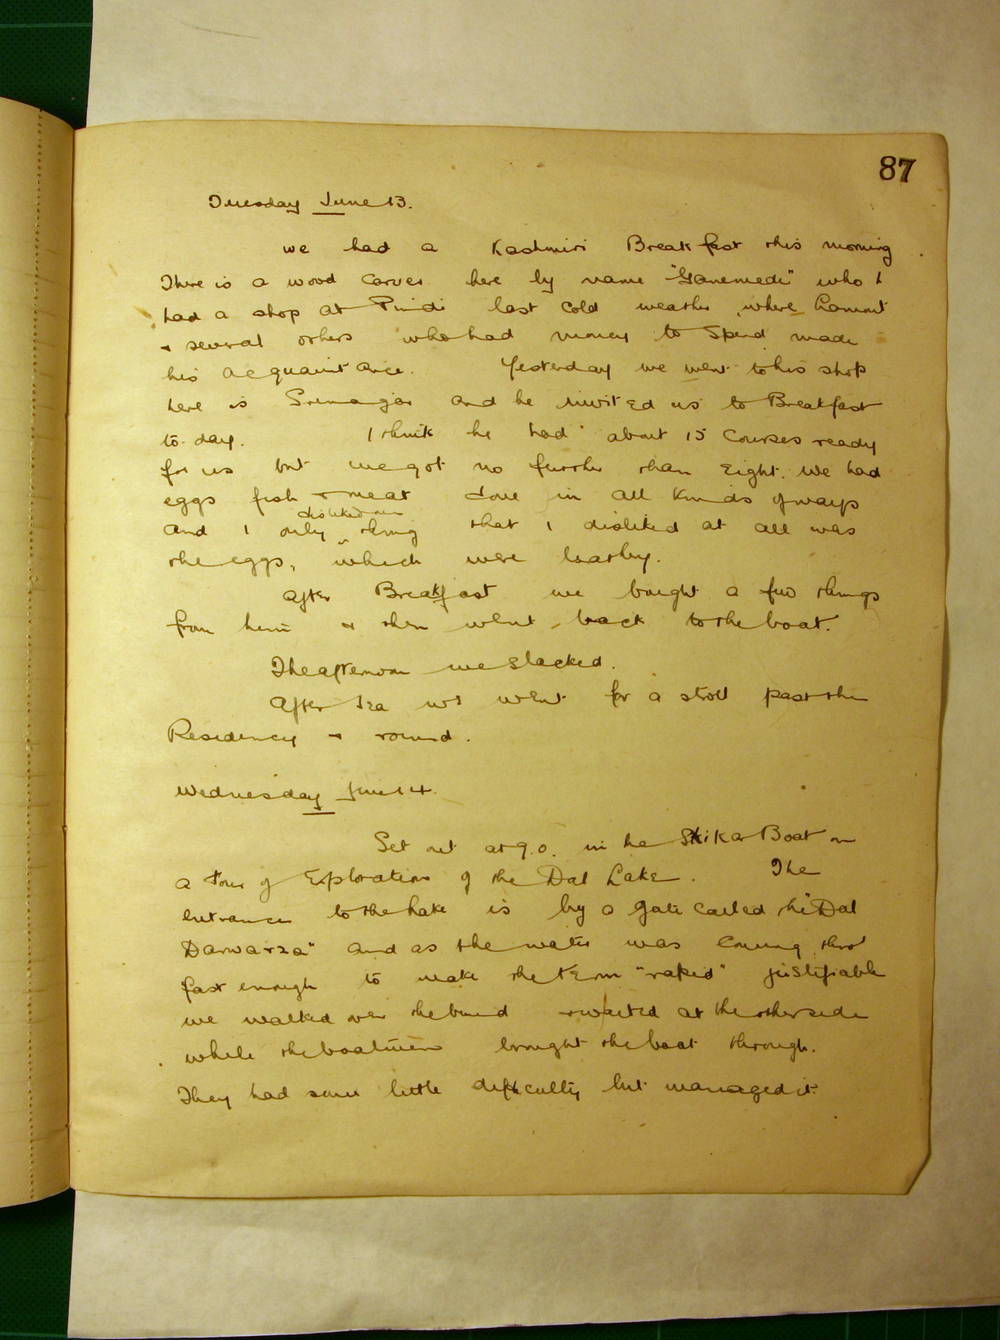 87
Tuesday June 13.
we had a Kashmiri Breakfast this morning
There is a wood carver here by name "Ganemede" who
had a shop at Pindi last cold weather, where
& several others who had money to spend made
his acquaintance. Yesterday we went to his shop
here is Srinagar and he invited us to Breakfast
to-day. I think he had about 15 courses ready
for us but we got no further than Eight. We had
eggs fish & meat done in all kinds of ways
disliked
and I only thing that I disliked at all was
the eggs, which were leathy.
After Breakfast we bought a few things
from him & then went back to the boat.
The afternoon we slacked.
After Tea we went for a stroll past the
Residency & round.
Wednesday June 14.
Set out at 9.0. in the Boat on
a Tour of Exploration of the Dal Lake. The
entrance to the Lake is by a gate called the "Dal
Darwarza" and as the water was coming thro'
fast enough to make the term "rapid" justifiable
we walked over the bund & waited at the otherside
while the boatmen brought the boat through.
They had some little difficulty but managed it.